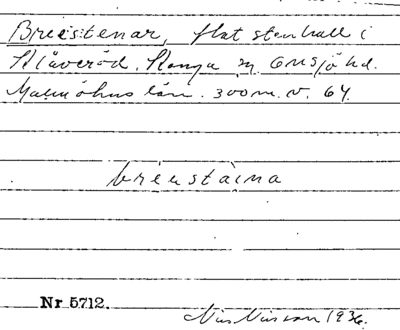 Breistenar, flat stenhall i
Slåveröd. Slonga sn. Onsjö hd.
Malmöhus län. 300 m. v. 64.
breustaina
Nr 5712.
Nils Nilsson 1936.